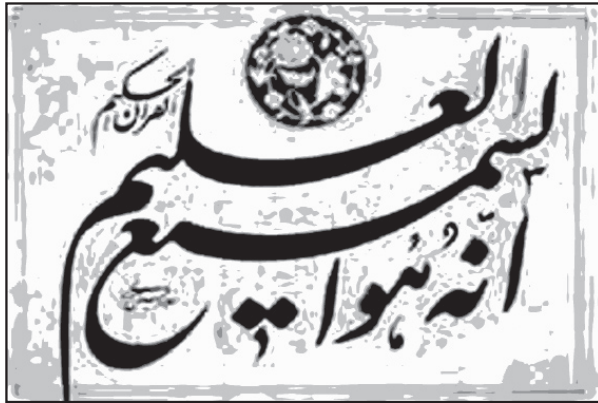 انّه هُو السميع
العليم
القران الحكيم